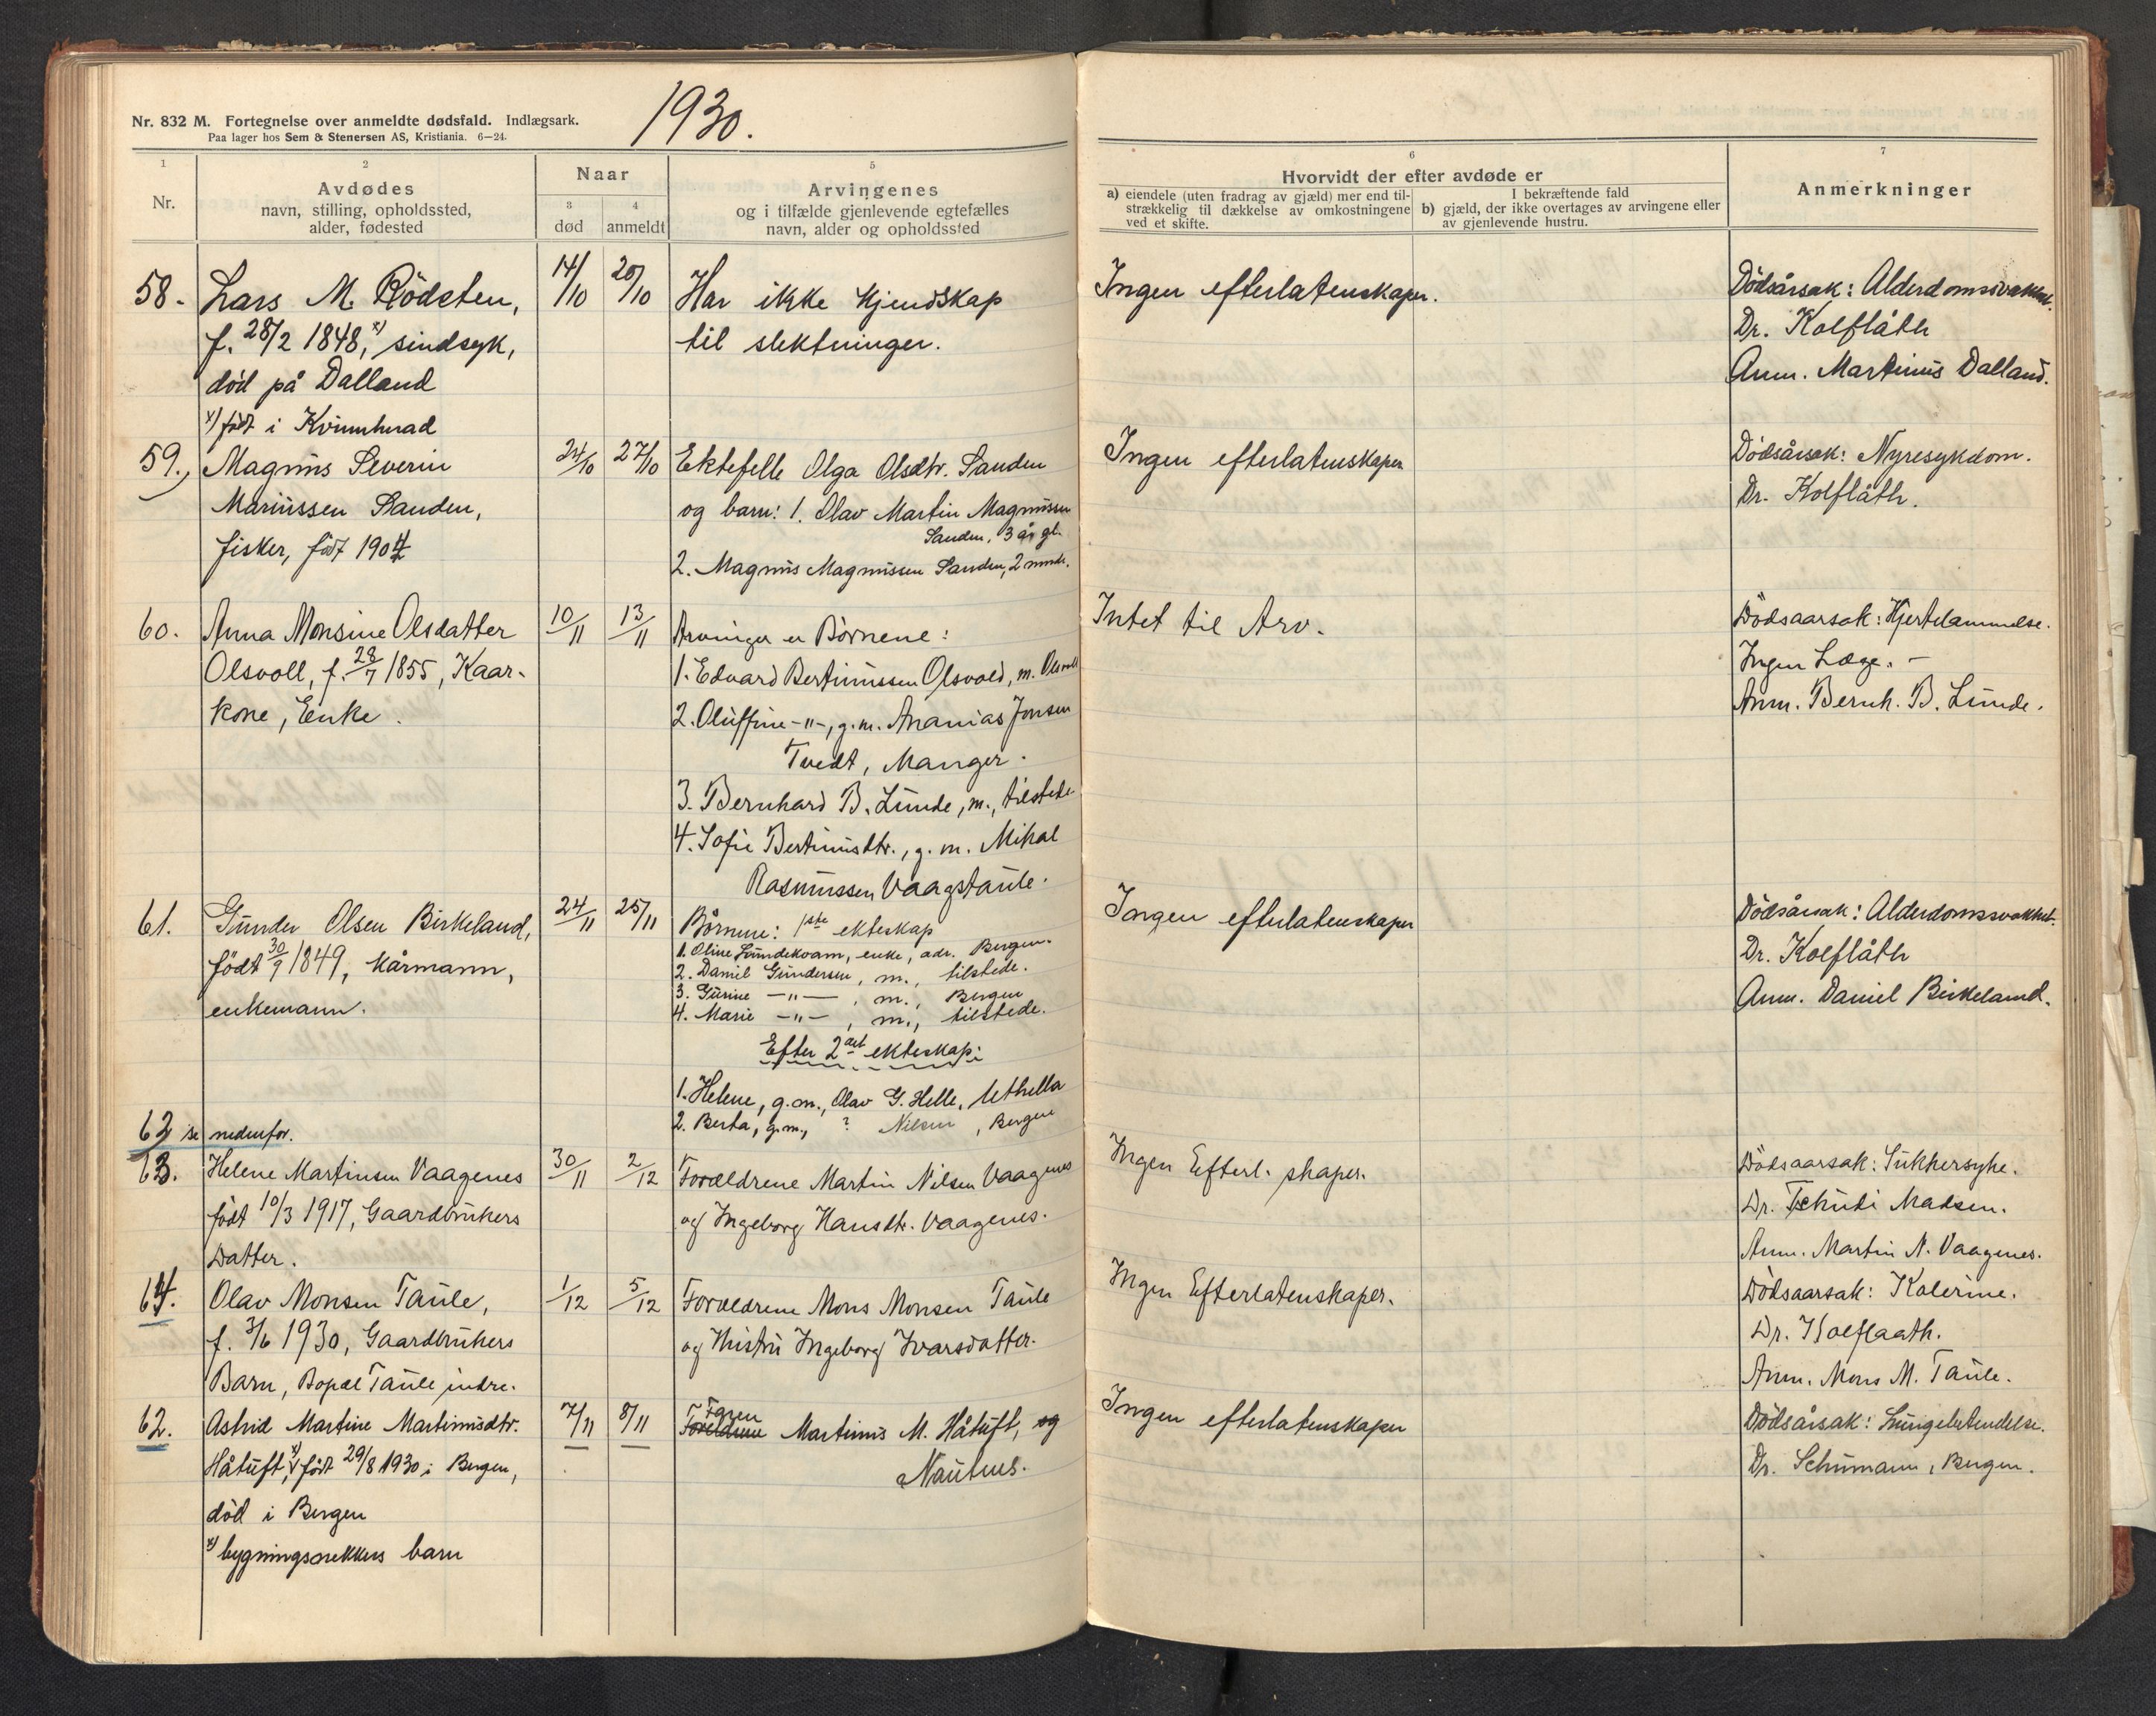 Nr. 832 M. Fortegnelse over anmeldte dødsfald. Indlægsark.
Paa lager hos Sem & Stenersen AS, Kristiania. 6—24.
1930.
1
Nr.
2
Avdødes
navn, stilling, opholdssted,
alder, fødested
Naar
3
død
4
anmeldt
5
Arvingenes
og i tilfælde gjenlevende egtefælles
navn, alder og opholdssted
6
Hvorvidt der efter avdøde er
a) eiendele (uten fradrag av gjæld) mer end til-
strækkelig til dækkelse av omkostningene
ved et skifte.
I bekræftende fald
b) gjæld, der ikke overtages av arvingene eller
av gjenlevende hustru.
7
Anmerkninger
58.
Lars M. Rödsten,
f. 28/2 1848, x) sindsyk,
död på Dalland
x) født i Kvinnherad
14/10
20/10
Har ikke kjendskap
til slektninger.
Ingen efterlatenskaper.
Dödsårsak: Alderdomssvakhet.
Dr. Kolflåth
Anm. Martinus Dalland.
59.
Magnus Severin
Mariussen Sanden,
fisker, født 1904
24/10
27/10
Ektefelle Olga Olsdtr. Sanden
og barn: 1. Olav Martin Magnussen
Sanden, 3 år gl.
2. Magnus Magnussen Sanden, 2 mndr.
Ingen efterlatenskaper
Dödsårsak: Nyresykdom.
Dr. Kolflåth.
60.
Anna Monsine Olsdatter
Olsvoll, f. 28/7 1855, Kaar-
kone, Enke.
10/11
13/11
Arvinger er Börnene:
1. Edvard Bertinussen Olsvold, m. Olsvoll
2. Oluffine -"-, g. m. Ananias Jonsen
Tvedt, Manger.
3. Bernhard B. Lunde, m., tilstede
4. Sofie Bertinusdtr., g. m. Mikal
Rasmussen Vaagstaule.
Intet til Arv.
Dödsaarsak: Hjertelammelse.
Ingen Læge. -
Anm. Bernh. B. Lunde.
61.
Gunder Olsen Birkeland,
född 30/9 1849, kårmann,
enkemann.
24/11
25/11
Börnene: 1ste ekteskap
1. Oline Lundekvam, enke, adr. Bergen.
2. Daniel Gundersen, m., tilstede.
3. Gurine -"-, m., Bergen
4. Marie -"-, m., tilstede.
Efter 2det ekteskap:
1. Helene, g. m., Olav G. Helle,
2. Berta, g. m., ? Nilsen, Bergen
Ingen efterlatenskaper
Dödsårsak: Alderdomssvakhet.
Dr. Kolflåth
Anm. Daniel Birkeland.
62 se nedenfor.
63.
Helene Martinsen Vaagenes
född 10/3 1917, Gaardbrukers
Datter.
30/11
2/12
Foreldrene Martin Nilsen Vaagenes
og Ingeborg Hansdtr. Vaagenes.
Ingen Efterl. skaper.
Dödsaarsak: Sukkersyke.
Dr. Tschudi Madsen.
Anm. Martin N. Vaagenes.
64.
Olav Monsen Taule,
f. 3/6 1930, Gaardbrukers
Barn, Bopæl Taule indre.
1/12
5/12
Foreldrene Mons Monsen Taule
og Hustru Ingeborg Ivarsdatter.
Ingen Efterlatenskaper.
Dödsaarsak: Kolerine.
Dr. Kolflaath.
Anm. Mons M. Taule.
62.
Astrid Martine Martinusdtr.
Håtuft, x) född 29/8 1930 i Bergen,
död i Bergen
x) bygningsnekkers barn
7/11
8/11
Faren
Foreldrene Martinus M. Håtuft, og
Nautnes.
Ingen efterlatenskaper
Dödsårsak: Lungebetendelse.
Dr. Schumann, Bergen.